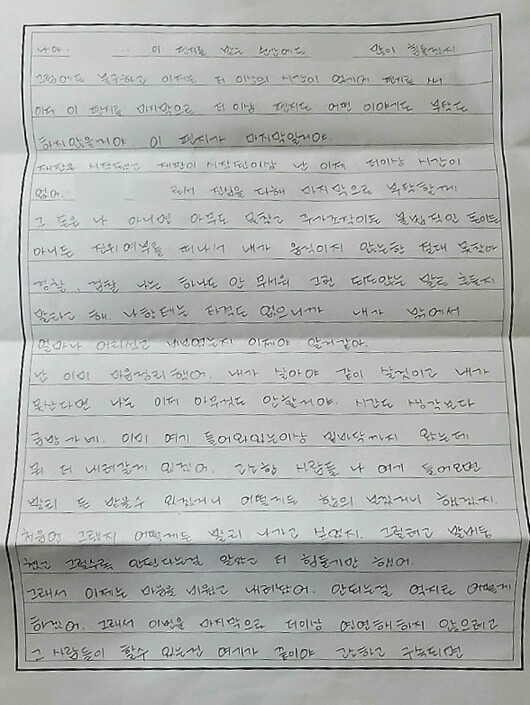 나야. ... 이 편지를 받는 순간에도 많이 힘들겠지
그럼에도 불구하고 이제는 더 이상의 시간이 없기에 편지를 써
아마 이 편지를 마지막으로 더 이상 편지도 어떤 이야기도 부탁도
하지않을거야. 이 편지가 마지막일거야.
재판은 시작됐고 재판이 시작된이상 난 이제 더이상 시간이
없어. 그래서 진심을 다해 마지막으로 부탁할게
그 돈은 나 아니면 아무도 못찾고 주가조작이든 불법적인 돈이든
아니든 진위여부를 떠나서 내가 움직이지 않는한 절대 못찾아
경찰, 검찰 나는 하나도 안 무서워 그런 되도않는 말은 하지
말라고 해. 나한테는 타격도 없으니까. 내가 밖에서
얼마나 어리석고 바보였는지 이제야 알거같아.
난 이미 마음정리했어. 내가 살아야 같이 살것이고 내가
못산다면 나는 이제 아무것도 안할거야. 시간도 생각보다
금방가네. 이미 여기 들어와있는이상 밑바닥까지 왔는데
뭐 더 내려갈게 있겠어. 고소한 사람들 나 여기 들어오면
빨리 돈 받을수 있겠거니 어떻게든 합의 보겠거니 했겠지.
처음엔 그랬지 어떻게든 빨리 나가고 싶었지. 그럴려고 발버둥
쳤고 그럴수록 안된다는걸 알았고 더 힘들기만 했어.
그래서 이제는 마음을 비웠고 내려놨어. 안되는걸 억지로 어떻게
하겠어. 그래서 이번을 마지막으로 더이상 연연해하지 않으려고
그 사람들이 할수 있는건 여기가 끝이야 고소하고 구속되면